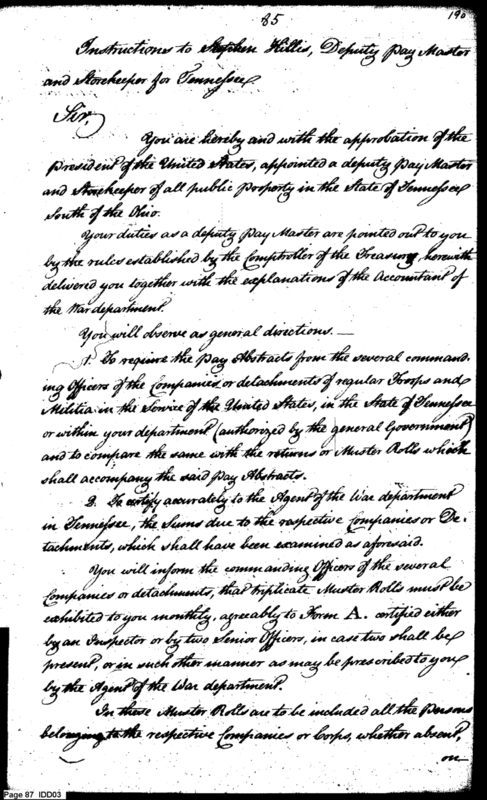 85
190
Instructions to Stephen Hillis, Deputy Pay Master
and Storekeeper for Tennessee
Sir,
You are hereby and with the approbation of the
President of the United States, appointed a deputy Pay Master
and Storekeeper of all public property in the State of Tennessee
South of the Ohio.
Your duties as a deputy Pay Master are pointed out to you
by the rules established by the Comptroller of the Treasury herewith
delivered you together with the explanations of the Accountant of
the War department.
You will observe as general directions. —
1. To require the Pay Abstracts from the several command-
ing Officers of the Companies or detachments of regular Troops and
Militia in the Service of the United States, in the State of Tennessee
or within your department (authorized by the general Government)
and to compare the same with the returns or Muster Rolls which
shall accompany the said Pay Abstracts.
2. To certify accurately to the Agent of the War department
in Tennessee, the Sums due to the respective Companies or De-
tachments, which shall have been examined as aforesaid.
You will inform the commanding Officers of the several
Companies or detachments, that triplicate Muster Rolls must be
exhibited to you monthly, agreeably to Form A. certified either
by an Inspector or by two Senior Officers, in case two shall be
present, or in such other manner as may be prescribed to you
by the Agent of the War department.
In these Muster Rolls are to be included all the Persons
belonging to the respective Companies or Corps, whether absent,
on
Page 87 IDD03